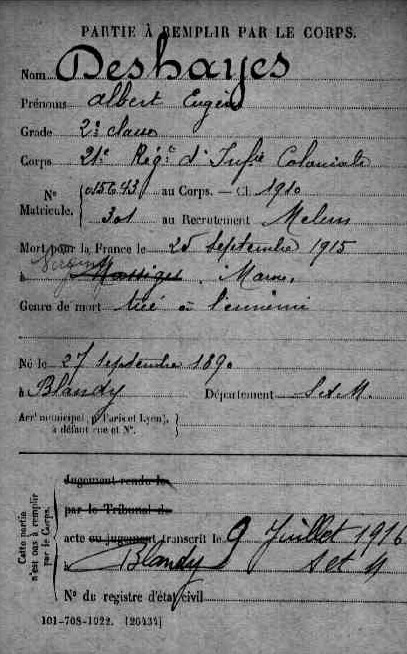 PARTIE À REMPLIR PAR LE CORPS.
Nom Deshayes
Prénoms Albert Eugène
Grade 2e classe
Corps 21e Régt d'Infie Coloniale
N° Matricule. { 015643 au Corps. — Cl. 1910
301 au Recrutement Melun
Mort pour la France le 25 Septembre 1915
à Massiges, Marne,
Genre de mort tué à l'ennemi
Né le 27 septembre 1890
à Blandy Département S et M.
Arrt municipal (Paris et Lyon),
à défaut rue et N°.
Cette partie n'est pas à remplir par le Corps.
Jugement rendu le
par le Tribunal de
acte ou jugement transcrit le 9 Juillet 1916
à Blandy S et M
N° du registre d'état civil
101-708-1922. [26434]